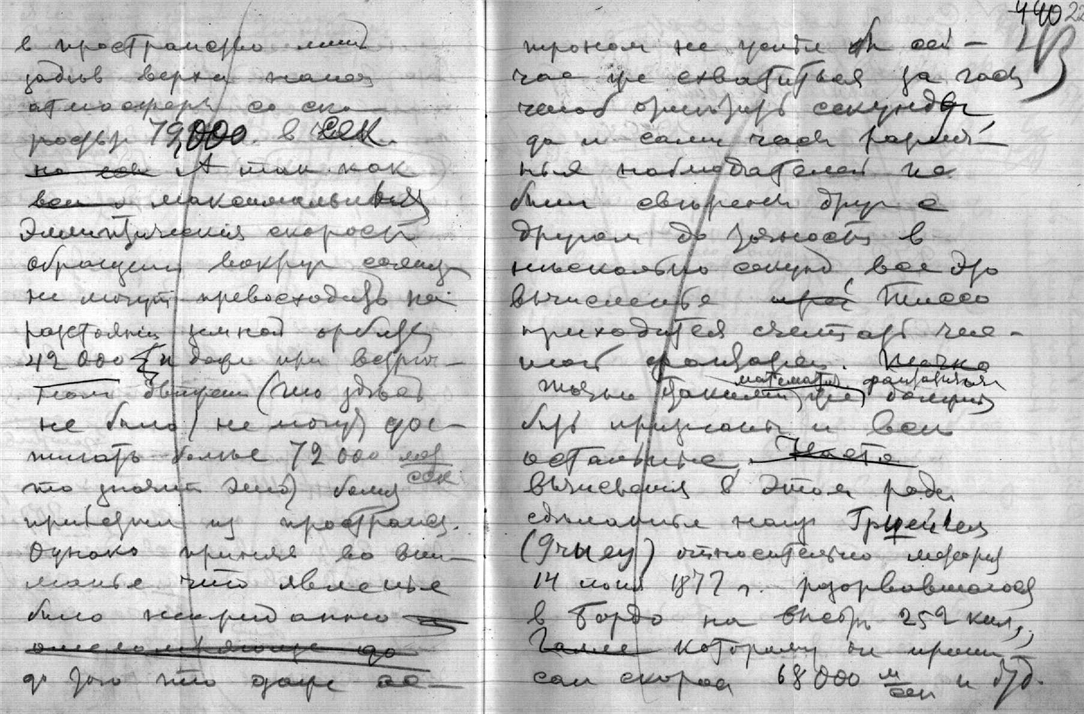 в пространство лишь
задѣв верхи нашей
атмосферы со ско-
ростью 79,000. в сек.
на сам А так как
всѣ максимальныя
Эллиптическія скорости
обращенія вокруг солнца
не могут превосходить на
разстояніи земной орбиты
42 000 и даже при встрѣч-
ном движеніи (что здѣсь
не было) не могут дос-
тигать болѣе 72 000 мет/сек
что значит Это) болид
пришедшій из пространств.
Однако приняв во вни-
манье что явленье
было неожиданно
ошеломляюще до
до того что даже ас-
440 22
трономъ не успѣл сей-
час же схватиться за часы
чтоб отмѣтить секунды
да и сами часы различ-
ных наблюдателей не
были свѣрены друг с
другом до точности в
нѣсколько секунд все это
вычисленье Тиссо
приходится считать чис-
той фантазіей. Точно
математич. фантазіями
такими же должны
быть признаны и всѣ
остальные
вычисленія в этом родѣ
сдѣланные напр Грушей
относительно метеора
14 июня 1877 г. разорвавшагося
в Бордо на высотѣ 252 кил.,
которому он припи-
сал скорость 68 000 м/сек и т.д.